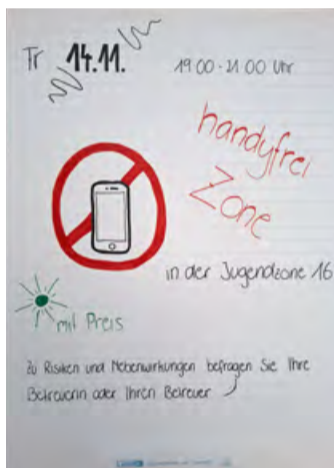 Tr 14.11. 19:00 - 21:00 Uhr
handyfrei
Zone
in der Jugendzone 16
mit Preis
Zu Risiken und Nebenwirkungen befragen Sie Ihre
Betreuerin oder Ihren Betreuer